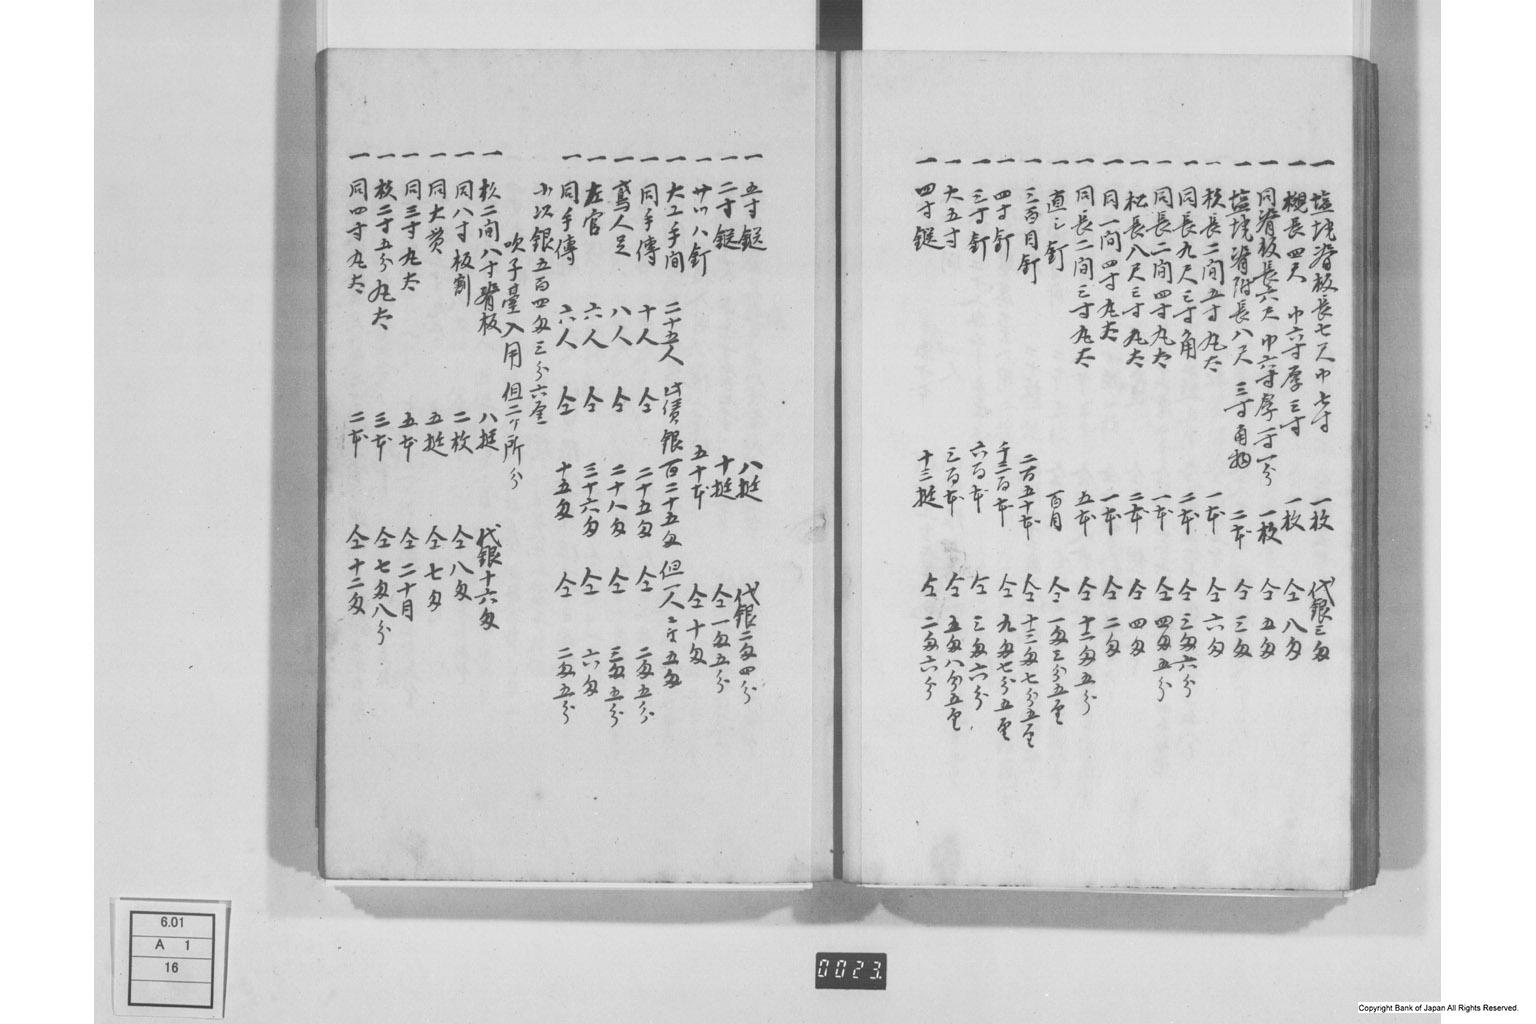 一 塩焼脊板長七尺巾七寸 一枚 代銀三匁
一 槻長四尺 巾六寸厚三寸 一枚 仝 八匁
一 同脊板長六尺巾六寸厚二寸一分 一枚 仝 五匁
一 塩焼脊附長八尺 三寸角物 二本 仝 三匁
一 杉長二間五寸丸太 一本 仝 六匁
一 同長九尺三寸角 二本 仝 三匁六分
一 同長二間四寸丸太 一本 仝 四匁五分
一 松長八尺三寸丸太 二本 仝 四匁
一 同一間四寸丸太 一本 仝 二匁
一 同長二間三寸丸太 五本 仝 十二匁五分
一 釘 百目 仝 一匁三分五厘
一 三百目釘 二百五十本 仝 十三匁七分五厘
一 四寸釘 千三百本 仝 九匁七分五厘
一 三寸釘 六百本 仝 三匁六分
一 大五寸 三百本 仝 五匁八分五厘
一 四寸鎹 十三挺 仝 二匁六分
一 五寸鎹 八挺 代銀二匁四分
一 二寸鎹 十挺 仝 一匁五分
一 釘 五十本 仝 十匁
一 大工手間 二十五人 此賃銀百二十五匁 但一人ニ付五匁
一 同手傳 十人 仝 二十五匁 仝 二匁五分
一 鳶人足 八人 仝 二十八匁 仝 三匁五分
一 左官 六人 仝 三十六匁 仝 六匁
一 同手傳 六人 仝 十五匁 仝 二匁五分
小以銀五百四匁三分六厘
吹子臺入用 但二ヶ所分
一 杉二間八寸脊板 八挺 代銀十六匁
一 同八寸板割 二枚 仝 八匁
一 同大貫 五挺 仝 七匁
一 同三寸丸太 五本 仝 二十目
一 杉二寸五分丸太 三本 仝 七匁八分
一 同四寸丸太 二本 仝 十二匁
6.01
A 1
16
0023.
Copyright Bank of Japan All Rights Reserved.